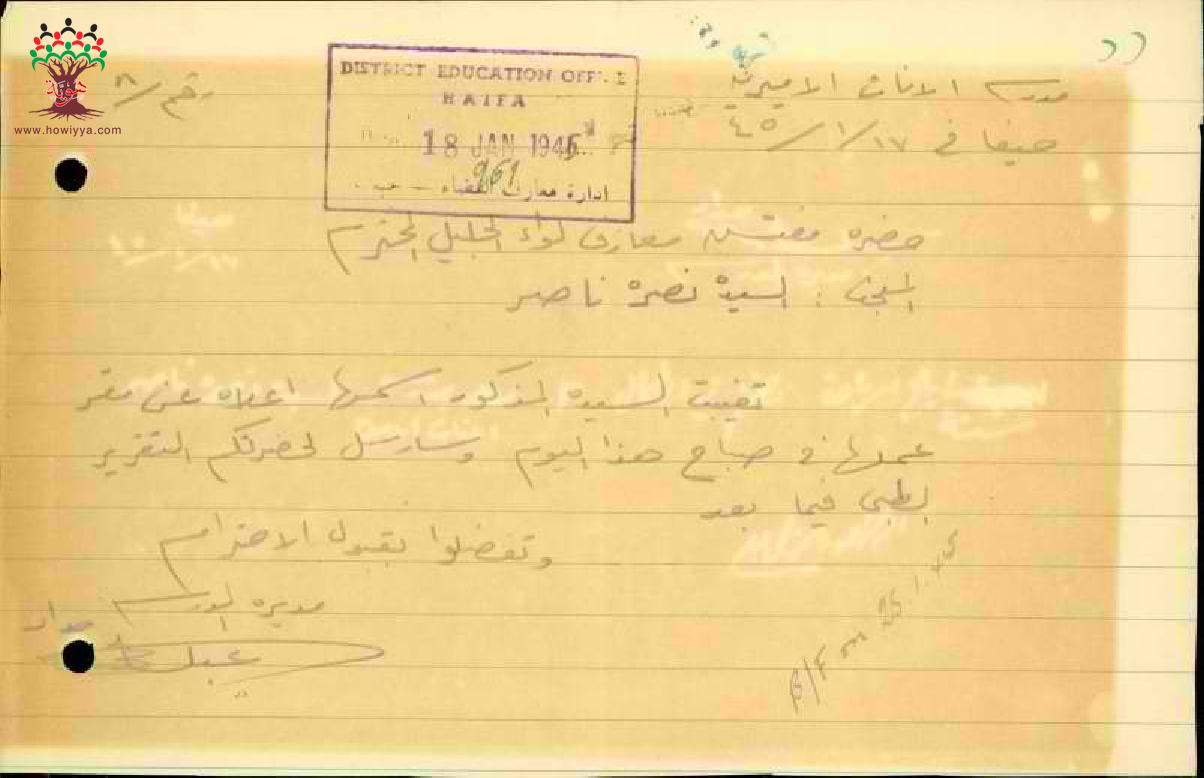 مدرسة الاناث الاميرية
حيفا في ١٧/١/٤٥
رقم /٨
DISTRICT EDUCATION OFFICE
HAIFA
18 JAN 1945
961
ادارة معارف
حضرة مفتش معارف لواء الجليل المحترم
المبحث : السيدة نصره ناصر
تغيبت السيدة المذكور اسمها اعلاه عن مقر
عملها في صباح هذا اليوم وسارسل لحضرتكم التقرير
الطبي فيما بعد
وتفضلوا بقبول الاحترام
مديرة المدرسة
B/F on 25.1.45
هوية
www.howiyya.com